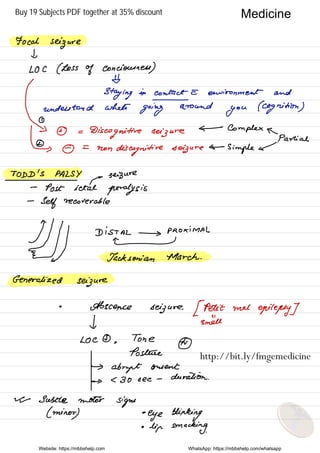 Buy 19 Subjects PDF together at 35% discount
Medicine
Focal seizure
↓
LOC (Loss of conciousness)
Staying in contact c̄ environment and
understand whats going around you (Cognition)
① → ⊕ = Discognitive seizure ← Complex
Partial
② → ⊖ = non discognitive seizure ← Simple
TODD'S PALSY → seizure
- Post ictal paralysis
- Self recoverable
DISTAL → PROXIMAL
Jacksonian March.
Generalized seizure
• Abscence seizure. [Petit mal epilepsy]
small
LOC ⊕, Tone
Posture
http://bit.ly/fmgemedicine
→ abrupt onset
→ < 30 sec - duration.
Subtle motor signs
(minor) • eye blinking
• lip smacking
Website: https://mbbshelp.com WhatsApp: https://mbbshelp.com/whatsapp